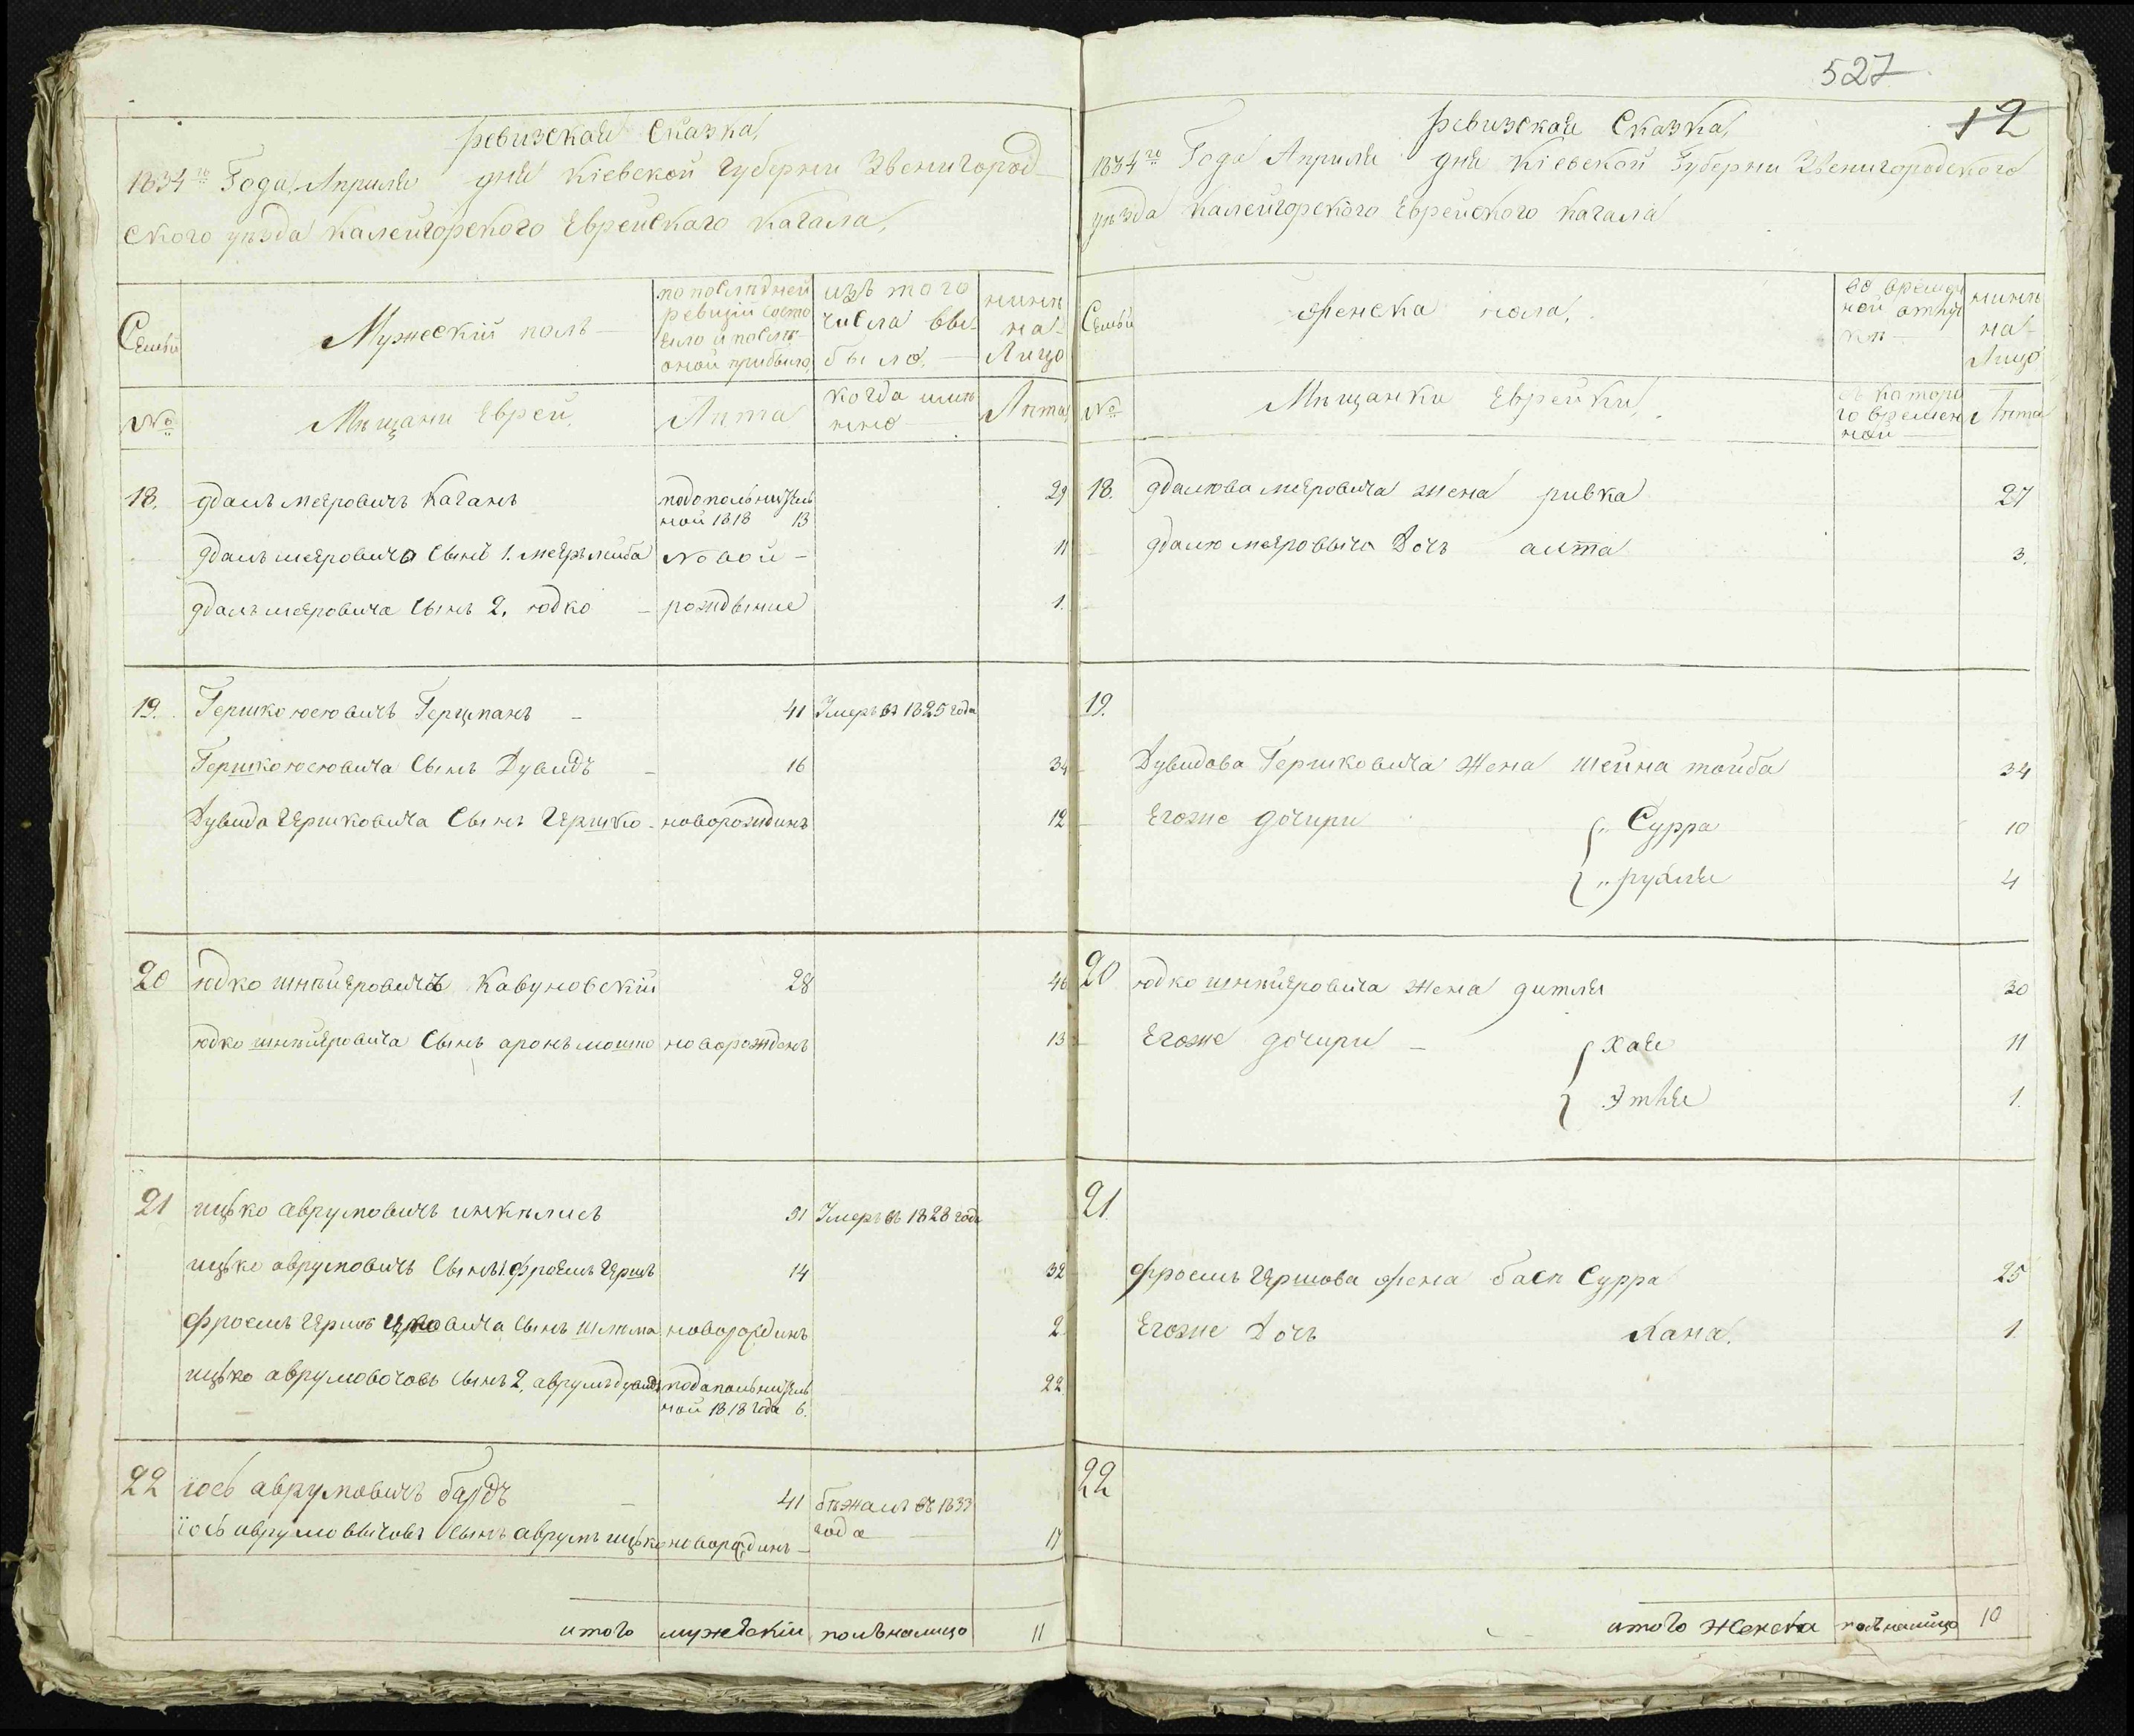 527
12
Ревизская Сказка,
1834го Года, Апреля дня Кіевской Губерни Звенигород-
ского уезда Калейгорского Еврейскаго Кагала,
Семьи
Мужескій полъ
по последней
ревизіи состо
яло и после
оной прибыло,
изъ того
числа вы-
было,
нине
на
Лицо
№
Мещани Евреи,
Лета
когда имен
нно
Лета
18. Юдаль меяровичъ Каганъ подополнитель 29
ной 1818 13
Юдаль меяровича Сынъ 1. меяръ лейба новой - 11
Юдаль меяровича Сынъ 2, юдко - рождение 1.
19. Гершко юсювичъ Герцманъ - 41 Умеръ въ 1825 года
Гершко юсювича Сынъ Дувидъ - 16 34
Дувида Гершковича Сынъ Гершко - новорожднъ 12
20 юдко шнпиеровичъ Кавуновскій 28 46
юдко шнпиеровича Сынъ аронъ мошко новорожденъ 13
21 ицько аврумовичъ 31 Умеръ въ 1828 года
ицько аврумовичъ Сынъ 1. фроемъ гершъ 14 32
фроемъ гершъ ицковича Сынъ шлема новорождинъ 2
ицько аврумовочовъ Сынъ 2, аврумъ дувидъ подаполнитель 22
ной 1818 года 6.
22 іось аврумовичъ бардъ - 41 бежалъ въ 1833
года
іось аврумовычовъ Сынъ аврумъ ицько новорождинъ - 17
итого мужескій полъ налицо 11
Ревизская Сказка,
1834го Года Апреля дня Кіевской Губерни Звенигородского
уезда Калейгорского Еврейского Кагала
Семьи
Женска пола,
во времен
ной отлуч
ке
нине
на-
Лицо
№
Мещанки Еврейки,
съ которо
го времен
ной
Лета
18. Юдалюва меяровича жена ривка 27
Юдалю меяровыча Дочъ алта 3.
19.
Дувидова Гершковича Жена шейна тойба 34
Егоже дочири „ Сурра 10
„ рухля 4
20 юдко шнпиеровича жена дитля 30
Егоже дочири - Хая 11
Этля 1.
21
фроемъ гершова жена бася Сурра 25
Егоже Дочъ Хана. 1.
22
итого Женска полъ налицо 10